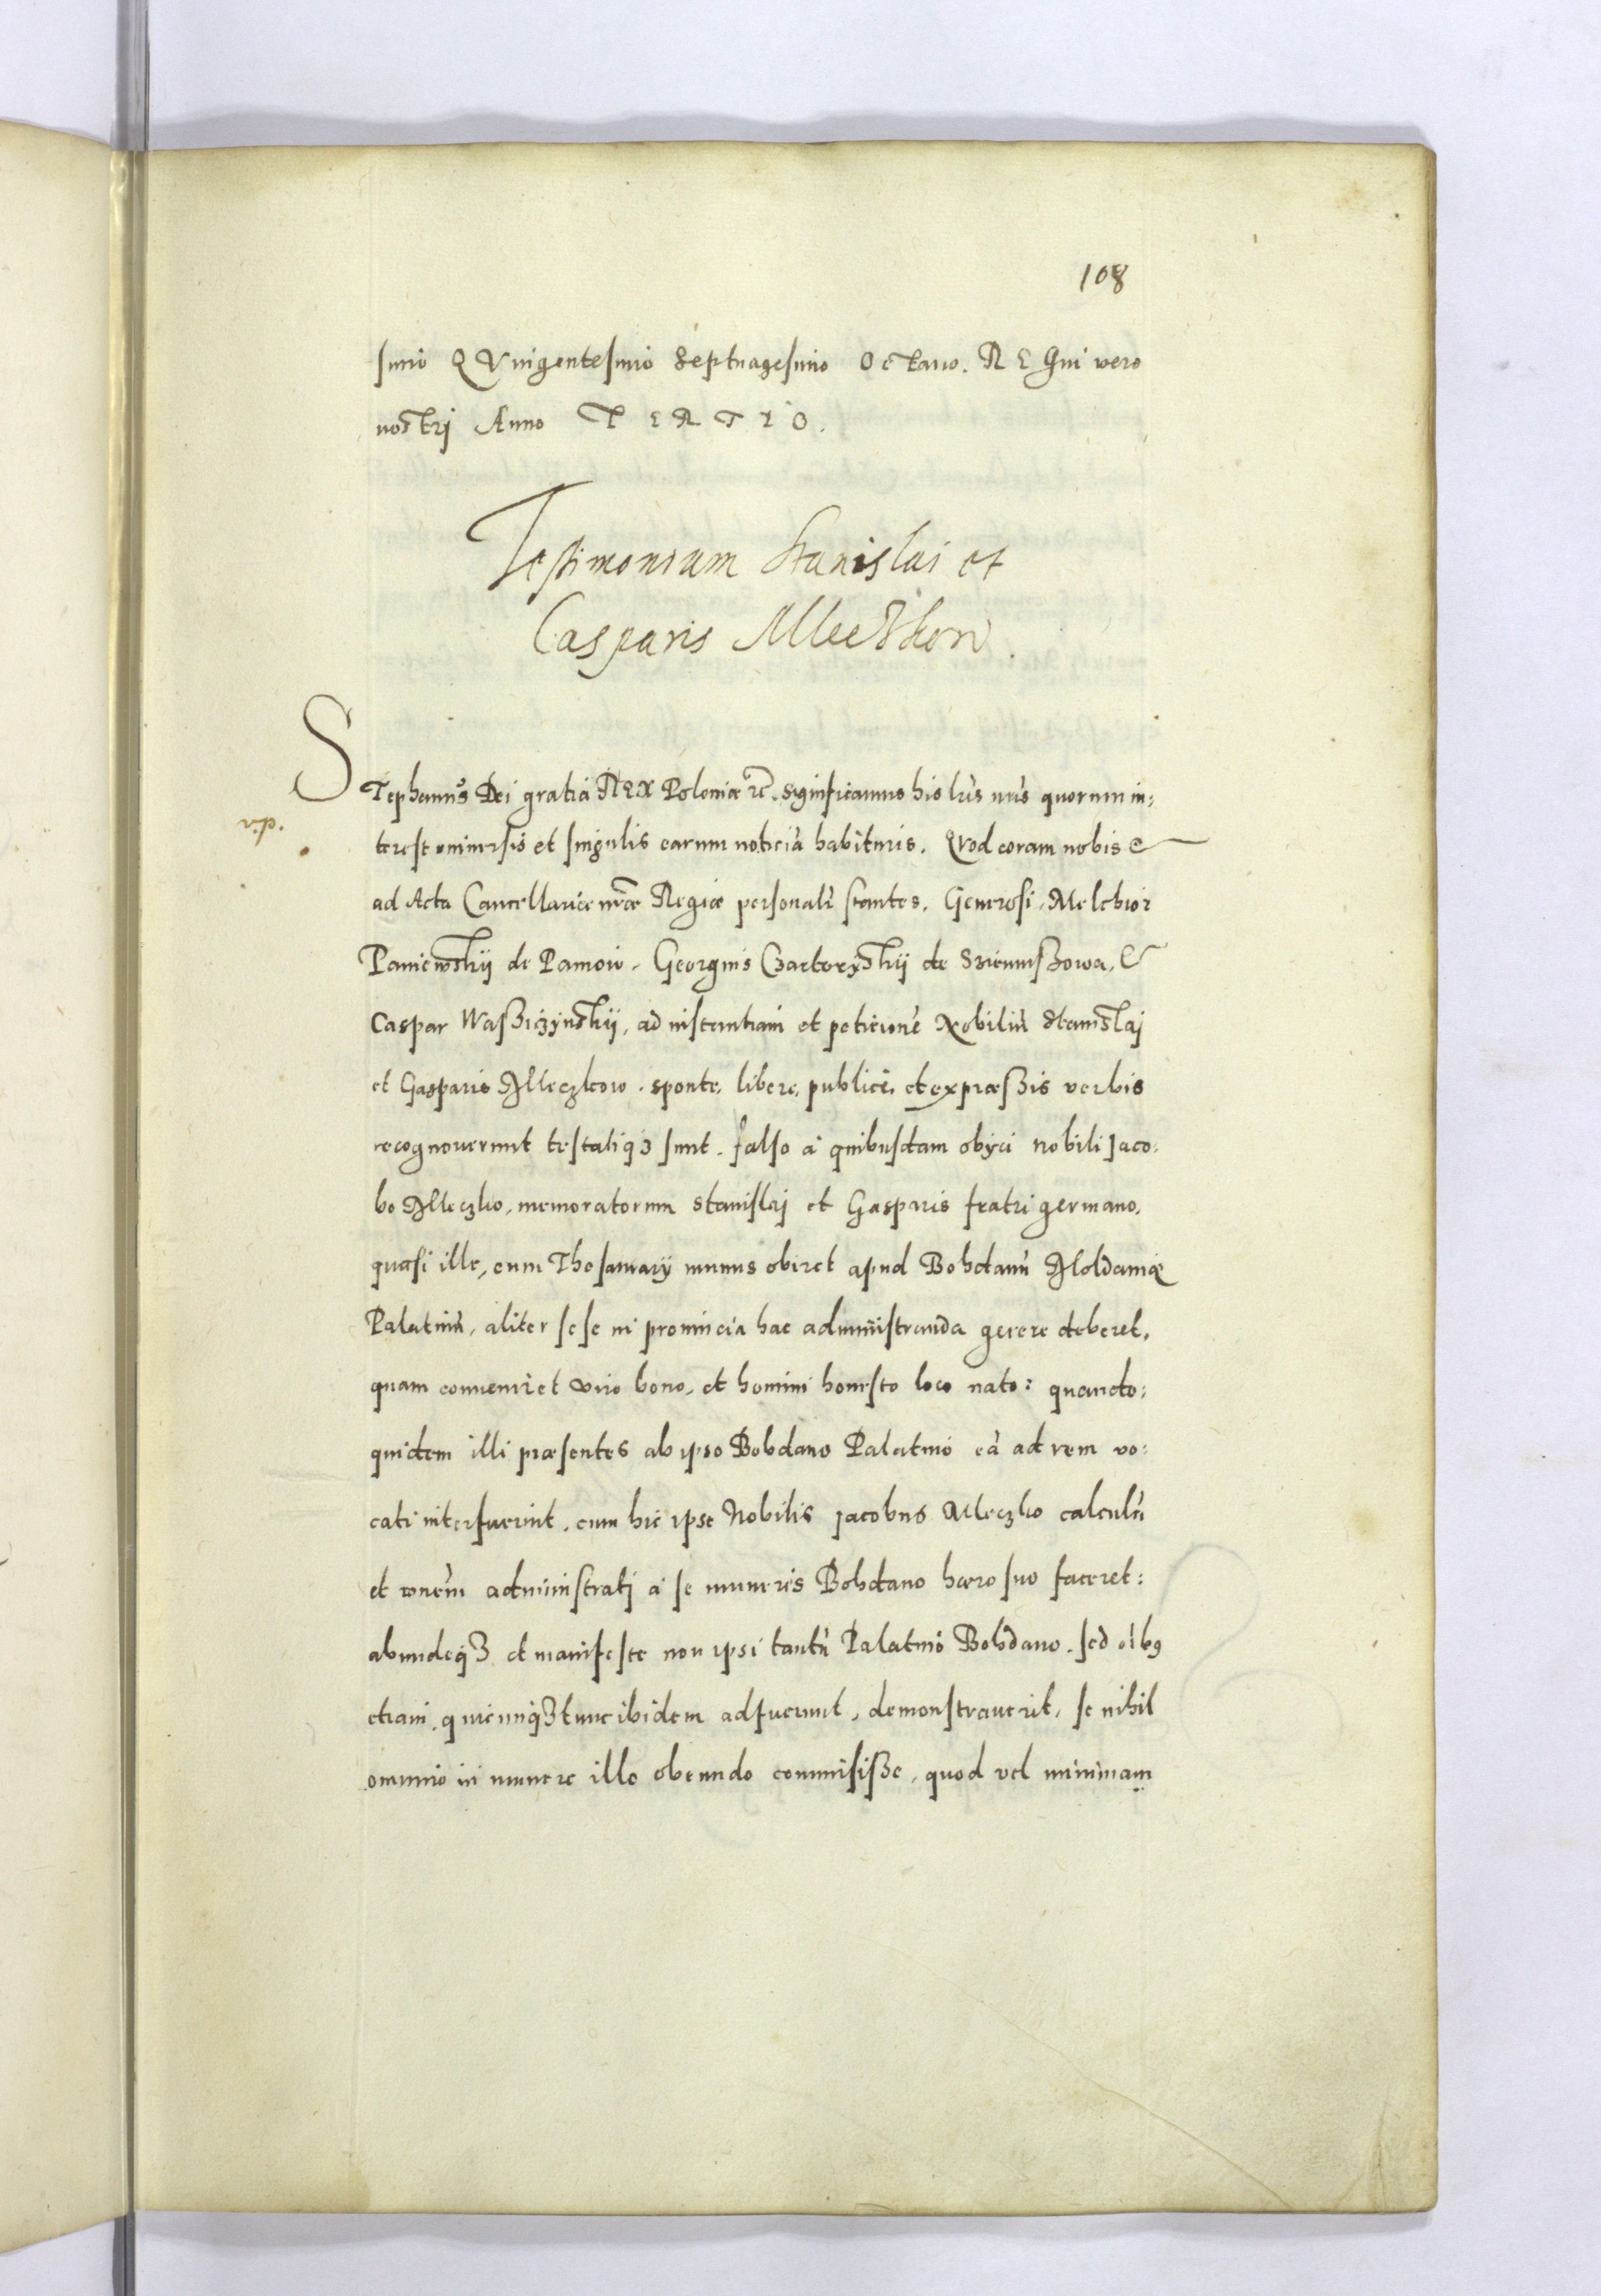 108
simo QVuigentesimo Septuagesimo Octauo. REGni vero
nostrj Anno TERTIO.
Testimonium Stanislai et
Casparis Mleczkow.
STephanus Dei gratia REX Poloniæ etc. Significamus his lris nris quorum in:
terest vniuersis et singulis earum noticiã habituris. Qvod coram nobis &
ad Acta Cancellariæ nræ Regiæ personalr stantes, Generosi, Melchior
Paniewskij de Paniow, Georgius Czartoryskij de &
Caspar Waßiczÿnskij, ad instantiam et peticionẽ Nobiliũ Stanislaj
et Gasparis Mleczkow, sponte, libere, publicè, et expræßis verbis
recognouerunt testatiq3 sunt, falso à quibusdam obÿci nobili Jaco:
bo Mleczko, memoratorum Stanislaj et Gasparis fratri germano,
quasi ille, cum Thesaurarÿ munus obiret apud Bohdanũ Moldauiæ
Palatinũ, aliter sese in prouincia hac administranda gerere deberet,
quam conueniret viro bono, et homini honesto loco nato: quando:
quidem illi præsentes ab ipso Bohdano Palatino eã ad rem vo:
cati interfuerint, cum hic ipse Nobilis Jacobus Mleczko calculũ
et ronẽm administratj à se muneris Bohdano hæro suo faceret:
abundeq3 et manifeste non ipsi tantũ Palatino Bohdano, sed oĩbq
etiam, quicunq3 tunc ibidem adfuerunt, demonstrauerit, se nihil
omnino in munere illo obeundo commisiße, quod vel minimam